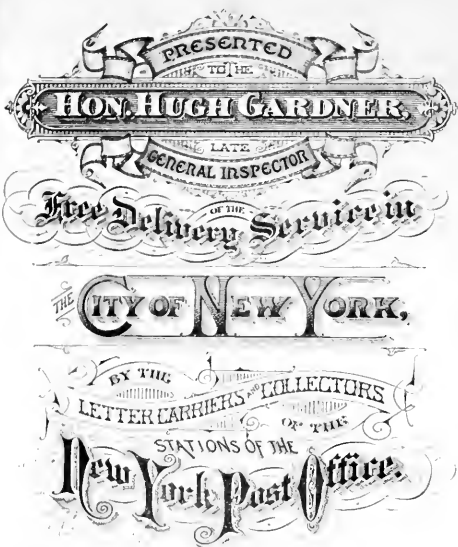 PRESENTED
TO THE
HON. HUGH GARDNER,
LATE
GENERAL INSPECTOR
OF THE
Free Delivery Service in
THE CITY OF NEW YORK,
BY THE
LETTER CARRIERS AND COLLECTORS
OF THE
STATIONS OF THE
New York Post Office.